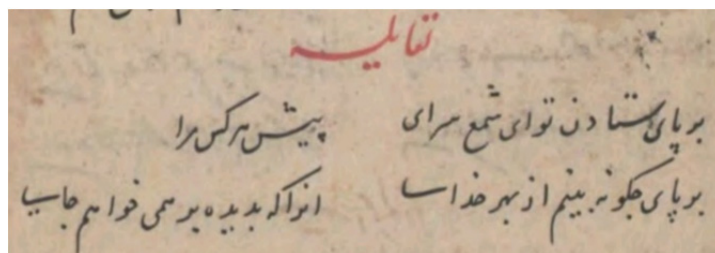 تقابلیه
بر پای ستادن تو ای شمع سرای پیش هر کس مرا
بر پای چکونه بینم از بهر خدا انرا که بدیده بر همی خواهم جای